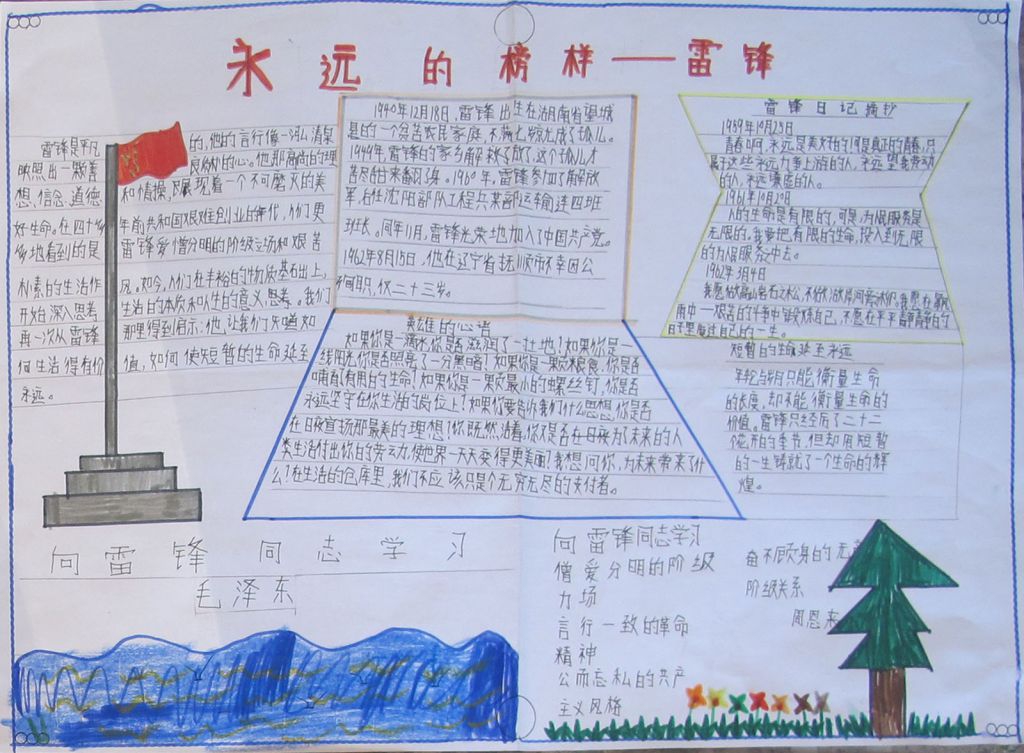 永远的榜样——雷锋
雷锋是平凡的,他的言行像一泓清泉
映照出一颗善良的心。他那高尚的理
想、信念、道德和情操,展现着一个不可磨灭的美
好生命。在四十多年前共和国艰难创业的年代,人们更
多地看到的是雷锋爱憎分明的阶级立场和艰苦
朴素的生活作风。如今,人们在丰裕的物质基础上,
开始深入思考生活的本质和人生的意义思考。我们
再一次从雷锋那里得到启示:他,让我们知道如
何生活得有价值,如何使短暂的生命延至
永远。
1940年12月18日,雷锋出生在湖南省望城
县的一个贫苦农民家庭,不满七岁就成了孤儿。
1949年,雷锋的家乡解放了,这个孤儿才
苦尽甘来翻了身。1960年,雷锋参加了解放
军,在沈阳部队工程兵某部运输连四班
班长。同年11月,雷锋光荣地加入了中国共产党。
1962年8月15日,他在辽宁省抚顺市不幸因公
殉职,仅二十三岁。
英雄的心语
如果你是一滴水,你是否滋润了一寸土地!如果你是一
线阳光,你是否照亮了一分黑暗!如果你是一颗粮食,你是否
哺育了有用的生命!如果你是一颗最小的螺丝钉,你是否
永远坚守在你生活的岗位上!如果你要告诉我们什么思想,你是否
在日夜宣扬那最美的理想!你既然活着,你又是否在日夜为了未来的人
类生活付出你的劳动,使世界一天天变得更美丽!我想问你,为未来带来了什
么!在生活的仓库里,我们不应该只是个无穷无尽的支付者。
雷锋日记摘抄
1959年10月25日
青春啊,永远是美好的!可是真正的青春,只
属于这些永远力争上游的人,永远忘我劳动
的人,永远谦虚的人。
1961年10月20日
人的生命是有限的,可是,为人民服务是
无限的,我要把有限的生命,投入到无限
的为人民服务中去。
1962年3月4日
雨中——艰苦的斗争中锻炼自己,不愿在平平静静的
日子里度过自己的一生。
短暂的生命延至永远
年轮与岁月只能衡量生命
的长度,却不能衡量生命的
价值。雷锋只经历了二十二
个花开的季节,但却用短暂
的一生铸就了一个生命的辉
煌。
向雷锋同志学习
毛泽东
向雷锋同志学习
憎爱分明的阶级
力场
言行一致的革命
精神
公而忘私的共产
主义风格
奋不顾身的无
阶级关系
周恩来